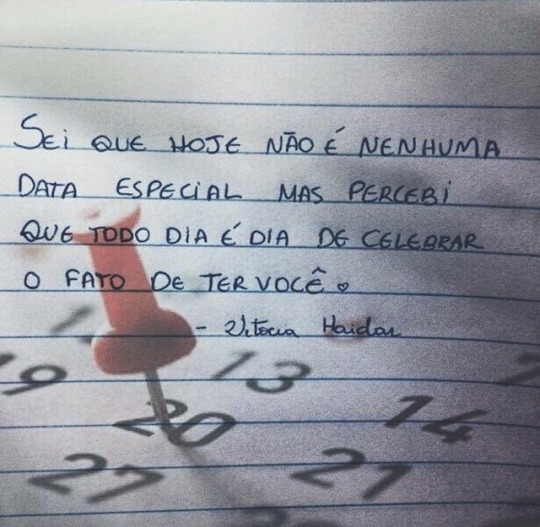 SEI QUE HOJE NÃO É NENHUMA
DATA ESPECIAL MAS PERCEBI
QUE TODO DIA É DIA DE CELEBRAR
O FATO DE TER VOCÊ
- Vitocia Haidar
19 13
20 14
27 21